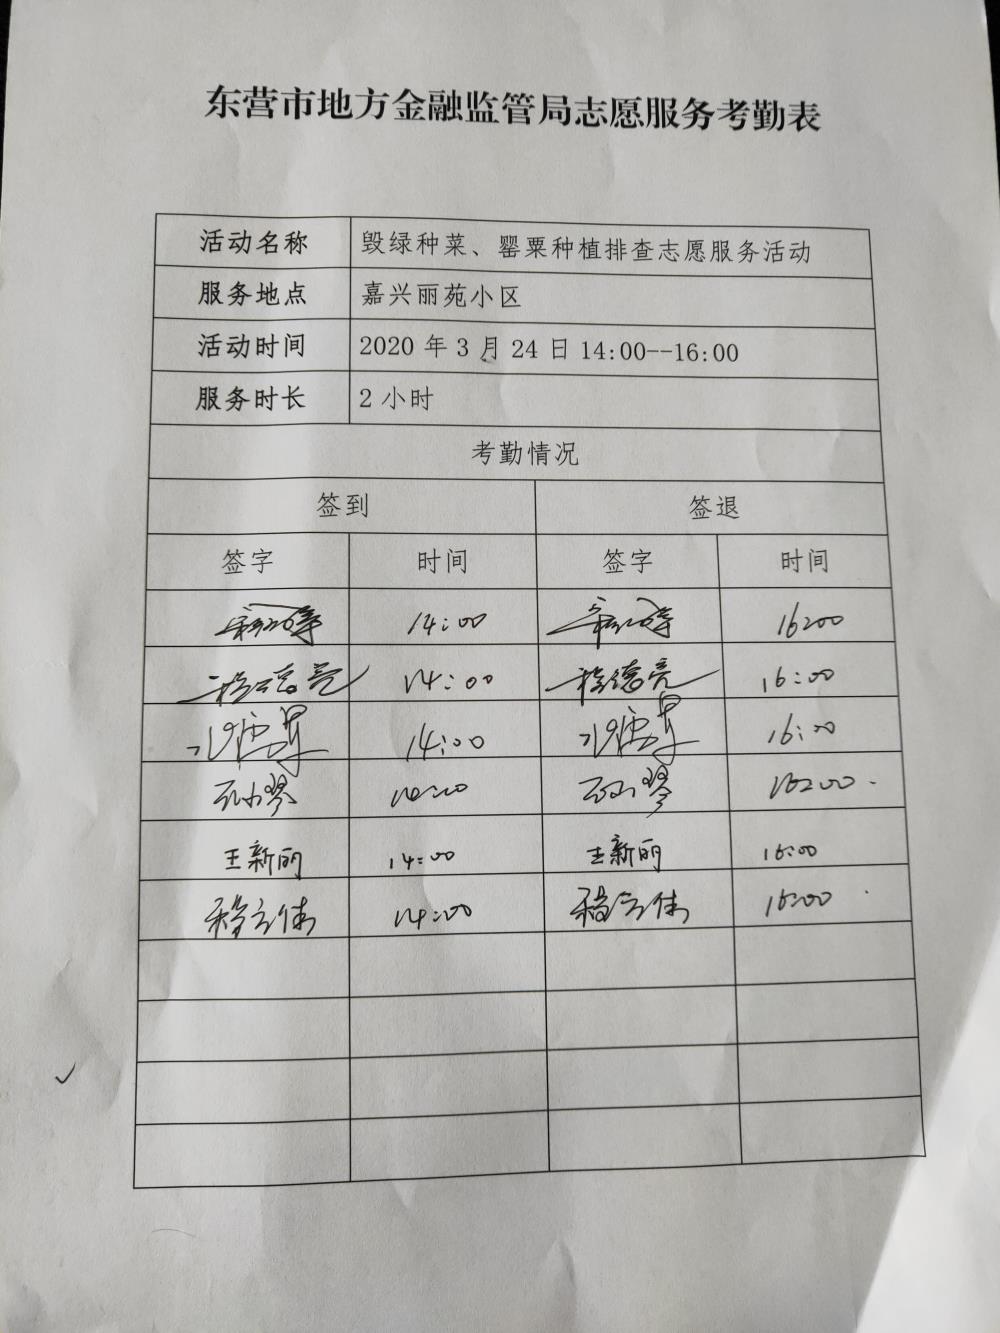 东营市地方金融监管局志愿服务考勤表
活动名称 毁绿种菜、罂粟种植排查志愿服务活动
服务地点 嘉兴丽苑小区
活动时间 2020 年 3 月 24 日 14:00--16:00
服务时长 2 小时
考勤情况
签到 签退
签字 时间 签字 时间
14:00 16:00
14:00 程德亮 16:00
14:00 16:00
16:00
王新丽 14:00 王新丽 16:00
14:00 16:00